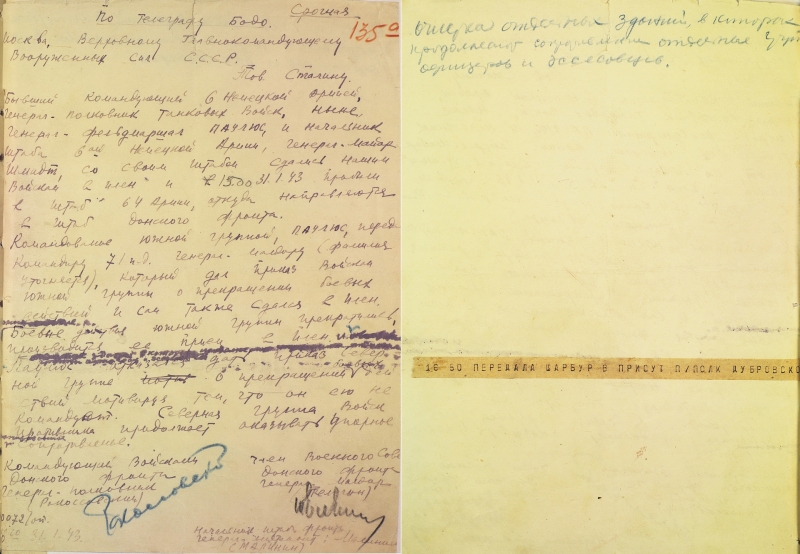 По Телеграфу Бодо. Срочная
135
Москва, Верховному Главнокомандующему
Вооруженных Сил С.С.С.Р.
Тов Сталину.
Бывший Командующий 6 Немецкой Армией,
Генерал-полковник танковых Войск, ныне
Генерал-фельдмаршал ПАУЛЮС, и начальник
Штаба 6ой Немецкой Армии, генерал-майор
Шмидт, со своим штабом сдались нашим
Войскам в плен и в 15.00 31.1.43 прибыли
в штаб 64 Армии, откуда направляются
в штаб Донского фронта.
Командование южной группой, ПАУЛЮС, передал
Командиру 71 п.д. генерал-майору (фамилия
уточняется), который дал Приказ Войскам
южной группы о прекращении боевых
действий и сам также сдался в плен.
Боевые действия южной группы прекратились,
производится ее прием в плен
Паулюс дать приказ Север-
ной группе о прекращении
ствий мотивируя тем, что он ею не
Командует. Северная группа Войск
противника продолжает оказывать упорное
сопротивление.
Командующий Войсками член Военного Сове
Донского фронта Донского фронта
Генерал-полковник Генерал-майор
(Рокоссовский) (Телегин)
Рокоссовск
0072/оп.
31.1.43. Начальник штаба фронта
Генерал-лейтенант: Малинин
(МАЛИНИН)
отдельных зданий, в которых
продолжают сопротивление отдельные груп
офицеров и эсесовцев.
16 50 ПЕРЕДАЛА ШАРБУР В ПРИСУТ ПУПОЛК ДУБРОВСКО